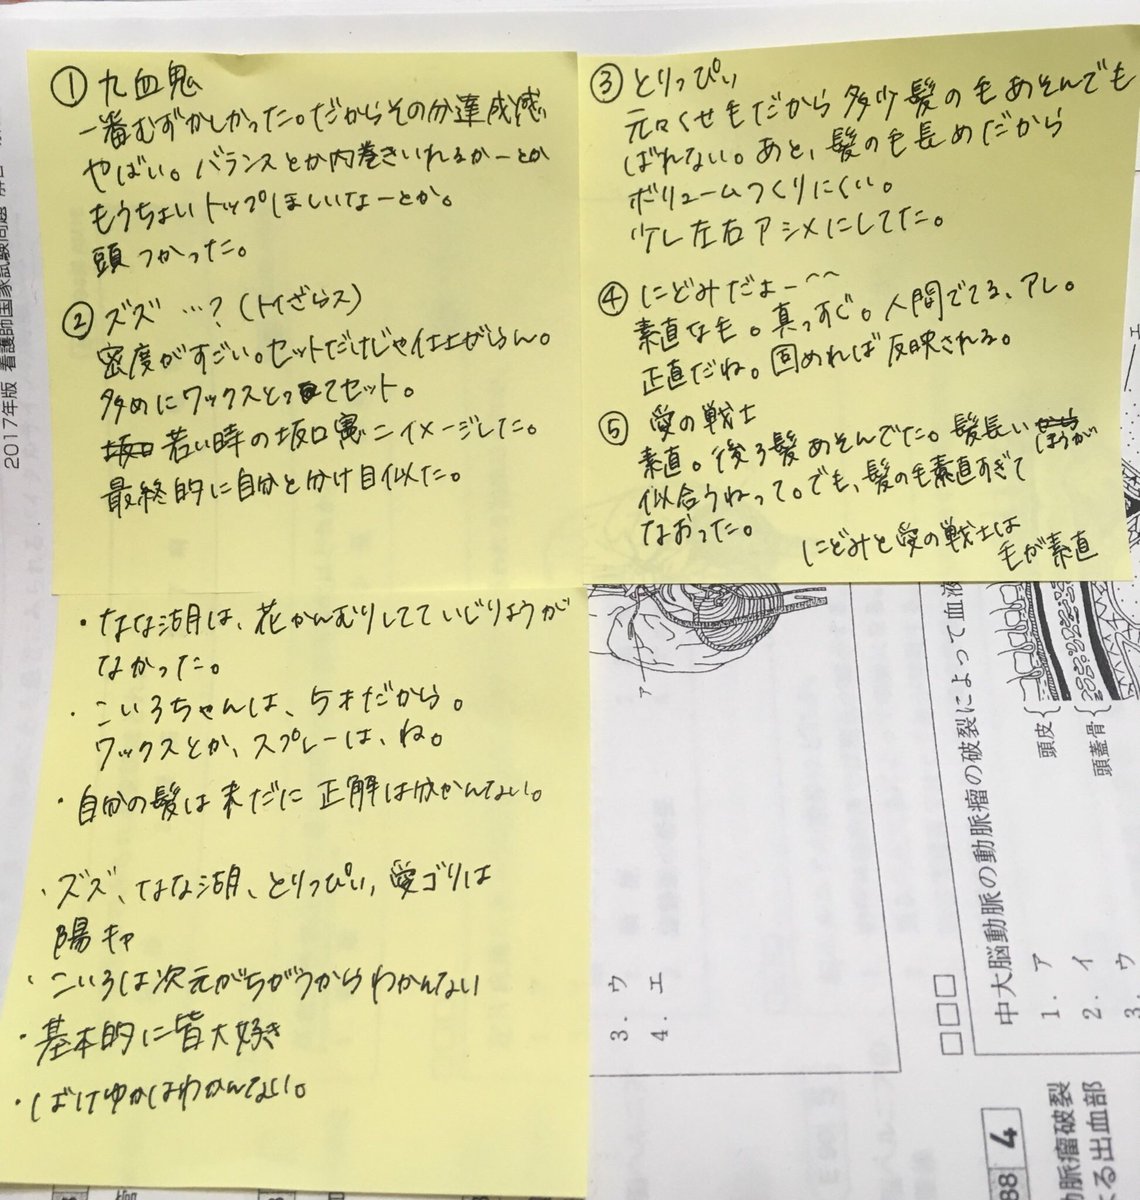 ① 九血鬼
一番むずかしかった。だからその分達成感
やばい。バランスとか内巻きいれるかーとか
もうちょいトップほしいなーとか。
頭つかった。
② ズズ …?(トイざらス)
密度がすごい。セットだけじゃ仕上がらん。
多めにワックスとってセット。
若い時の坂口憲二イメージした。
最終的に自分と分け目似た。
③ とりっぴぃ
元々くせ毛だから多少髪の毛あそんでも
ばれない。あと、髪の毛長めだから
ボリュームつくりにくい。
少し左右アシメにしてた。
④ にどみだよー^^
素直な毛。真っすぐ。人間でてる、アレ。
正直だね。固めれば反映される。
⑤ 愛の戦士
素直。後ろ髪あそんでた。髪長いほうが
似合うねって。でも、髪の毛素直すぎて
なおった。
にどみと愛の戦士は
毛が素直
・なな湖は、花かんむりしてていじりようが
なかった。
・こいろちゃんは、5才だから。
ワックスとか、スプレーは、ね。
・自分の髪は未だに正解は分かんない。
・ズズ、なな湖、とりっぴぃ、愛ゴリは
陽キャ
・こいろは次元がちがうからわかんない
・基本的に皆大好き
・ばけゆかはわかんない。
2017年版 看護師国家試験問題
ア
3. ウ
4. エ
エ
頭皮
頭蓋骨
中大脳動脈の動脈瘤の破裂によって血液
1. ア
2. イ
3. ウ
88 4
脈瘤破裂
る出血部